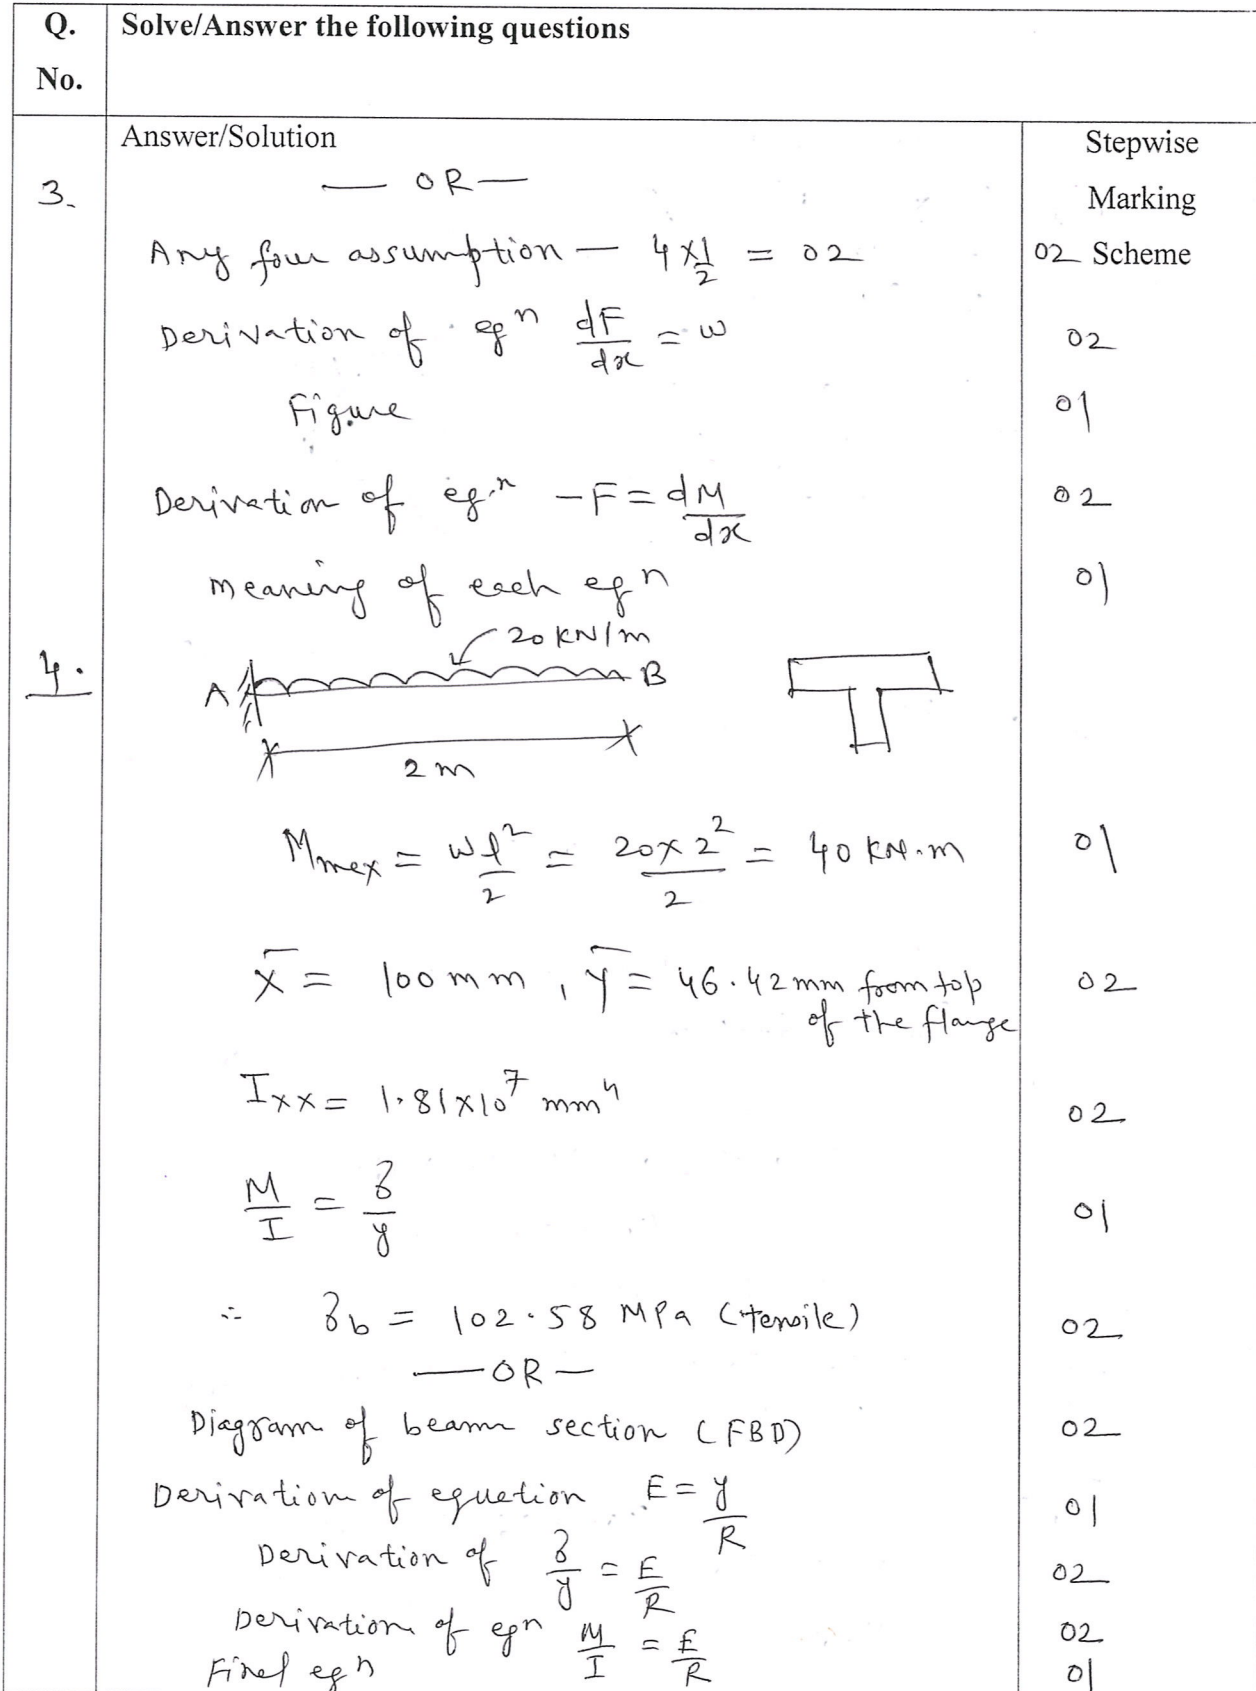 Q. No. Solve/Answer the following questions
Answer/Solution
Stepwise Marking Scheme
3. — OR —
Any four assumption — 4 × 1/2 = 02 02
Derivation of eqn dF/dx = w 02
Figure 01
Derivation of eqn – F = dM/dx 02
meaning of each eqn 01
4. 20 KN/m
A B
2 m
Mmax = wl²/2 = 20×2²/2 = 40 KN.m 01
X̄ = 100 mm, Ȳ = 46.42 mm from top 02
of the flange
Ixx = 1.81×10⁷ mm⁴ 02
M/I = σ/y 01
∴ σb = 102.58 MPa (tensile) 02
— OR —
Diagram of beam section (FBD) 02
Derivation of equation E = y/R 01
Derivation of σ/y = E/R 02
Derivation of eqn M/I = E/R 02
Final eqn 01